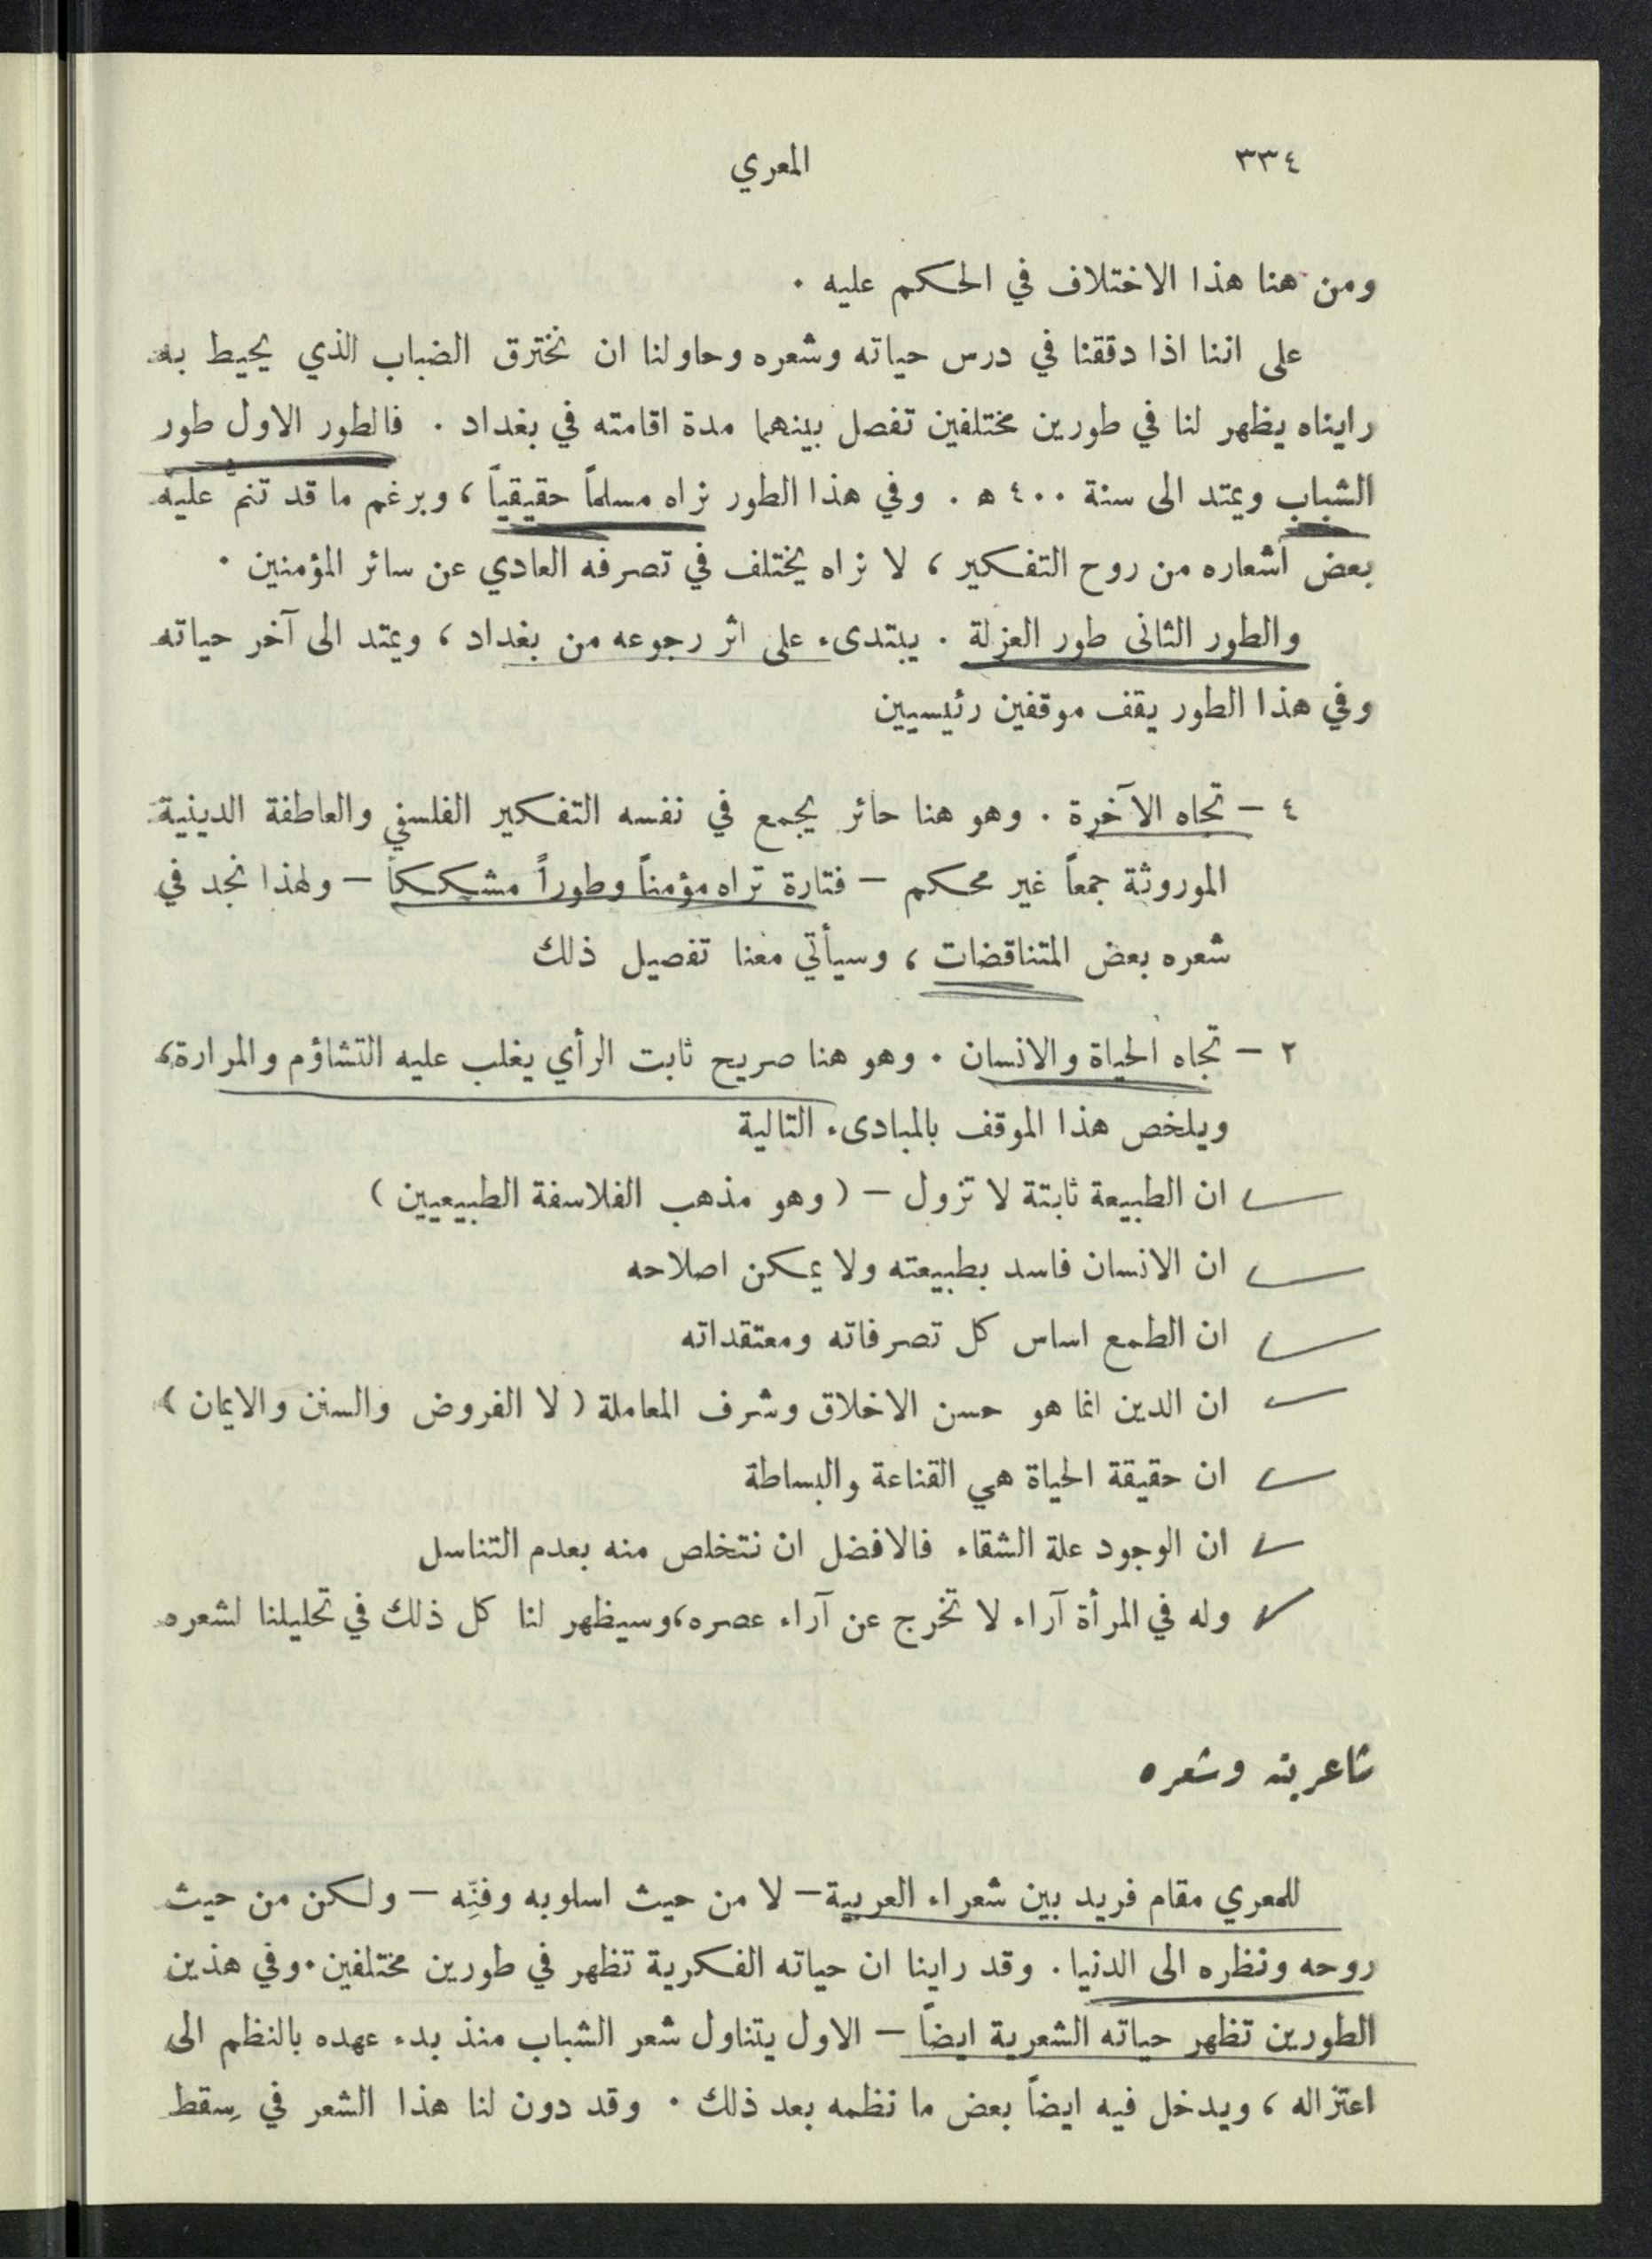 ٣٣٤
المعري
ومن هنا هذا الاختلاف في الحكم عليه .
على اننا اذا دققنا في درس حياته وشعره وحاولنا ان نخترق الضباب الذي يحيط به
رايناه يظهر لنا في طورين مختلفين تفصل بينهما مدة اقامته في بغداد . فالطور الاول طور
الشباب ويمتد الى سنة ٤٠٠ ه . وفي هذا الطور نراه مسلماً حقيقياً ، وبرغم ما قد تنمّ عليه
بعض اشعاره من روح التفكير ، لا نراه يختلف في تصرفه العادي عن سائر المؤمنين .
والطور الثاني طور العزلة . يبتدىء على اثر رجوعه من بغداد ، ويمتد الى آخر حياته
وفي هذا الطور يقف موقفين رئيسيين
٤ – تجاه الآخرة . وهو هنا حائر يجمع في نفسه التفكير الفلسفي والعاطفة الدينية
الموروثة جمعاً غير محكم – فتارة تراه مؤمناً وطوراً مشككاً – ولهذا نجد في
شعره بعض المتناقضات ، وسيأتي معنا تفصيل ذلك
٢ – تجاه الحياة والانسان . وهو هنا صريح ثابت الرأي يغلب عليه التشاؤم والمرارة ،
ويلخص هذا الموقف بالمبادىء التالية
ان الطبيعة ثابتة لا تزول – ( وهو مذهب الفلاسفة الطبيعيين )
ان الانسان فاسد بطبيعته ولا يمكن اصلاحه
ان الطمع اساس كل تصرفاته ومعتقداته
ان الدين انما هو حسن الاخلاق وشرف المعاملة ( لا الفروض والسنن والايمان )
ان حقيقة الحياة هي القناعة والبساطة
ان الوجود علة الشقاء فالافضل ان نتخلص منه بعدم التناسل
وله في المرأة آراء لا تخرج عن آراء عصره ، وسيظهر لنا كل ذلك في تحليلنا لشعره
شاعريته وشعره
للمعري مقام فريد بين شعراء العربية – لا من حيث اسلوبه وفنِّه – ولكن من حيث
روحه ونظره الى الدنيا . وقد راينا ان حياته الفكرية تظهر في طورين مختلفين . وفي هذين
الطورين تظهر حياته الشعرية ايضاً – الاول يتناول شعر الشباب منذ بدء عهده بالنظم الى
اعتزاله ، ويدخل فيه ايضاً بعض ما نظمه بعد ذلك . وقد دون لنا هذا الشعر في سِقط